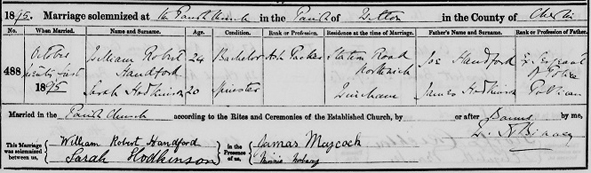 1895. Marriage solemnized at the Parish Church in the Parish of Witton in the County of Chester
No. When Married. Name and Surname. Age. Condition. Rank or Profession. Residence at the time of Marriage. Father's Name and Surname. Rank or Profession of Father.
488 October 1895 William Robert Handford 24 Bachelor Packer Station Road Northwich Joe Handford Ex Sergeant of Police
Sarah Hodkinson 20 Spinster James Hodkinson
Married in the Parish Church according to the Rites and Ceremonies of the Established Church, by or after Banns by me,
This Marriage was solemnized between us, William Robert Handford Sarah Hodkinson in the Presence of us, James Maycock